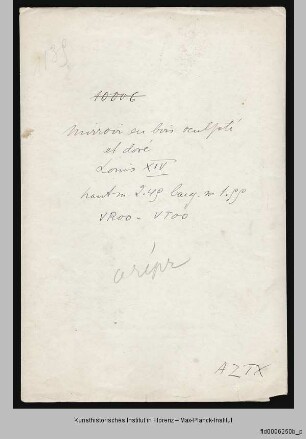 10006
Mirroir en bois sculpté
et doré
Louis XIV
haut m 2.40 larg. m 1.90
VROO - VTOO
AZTX
Kunsthistorisches Institut in Florenz – Max-Planck-Institut